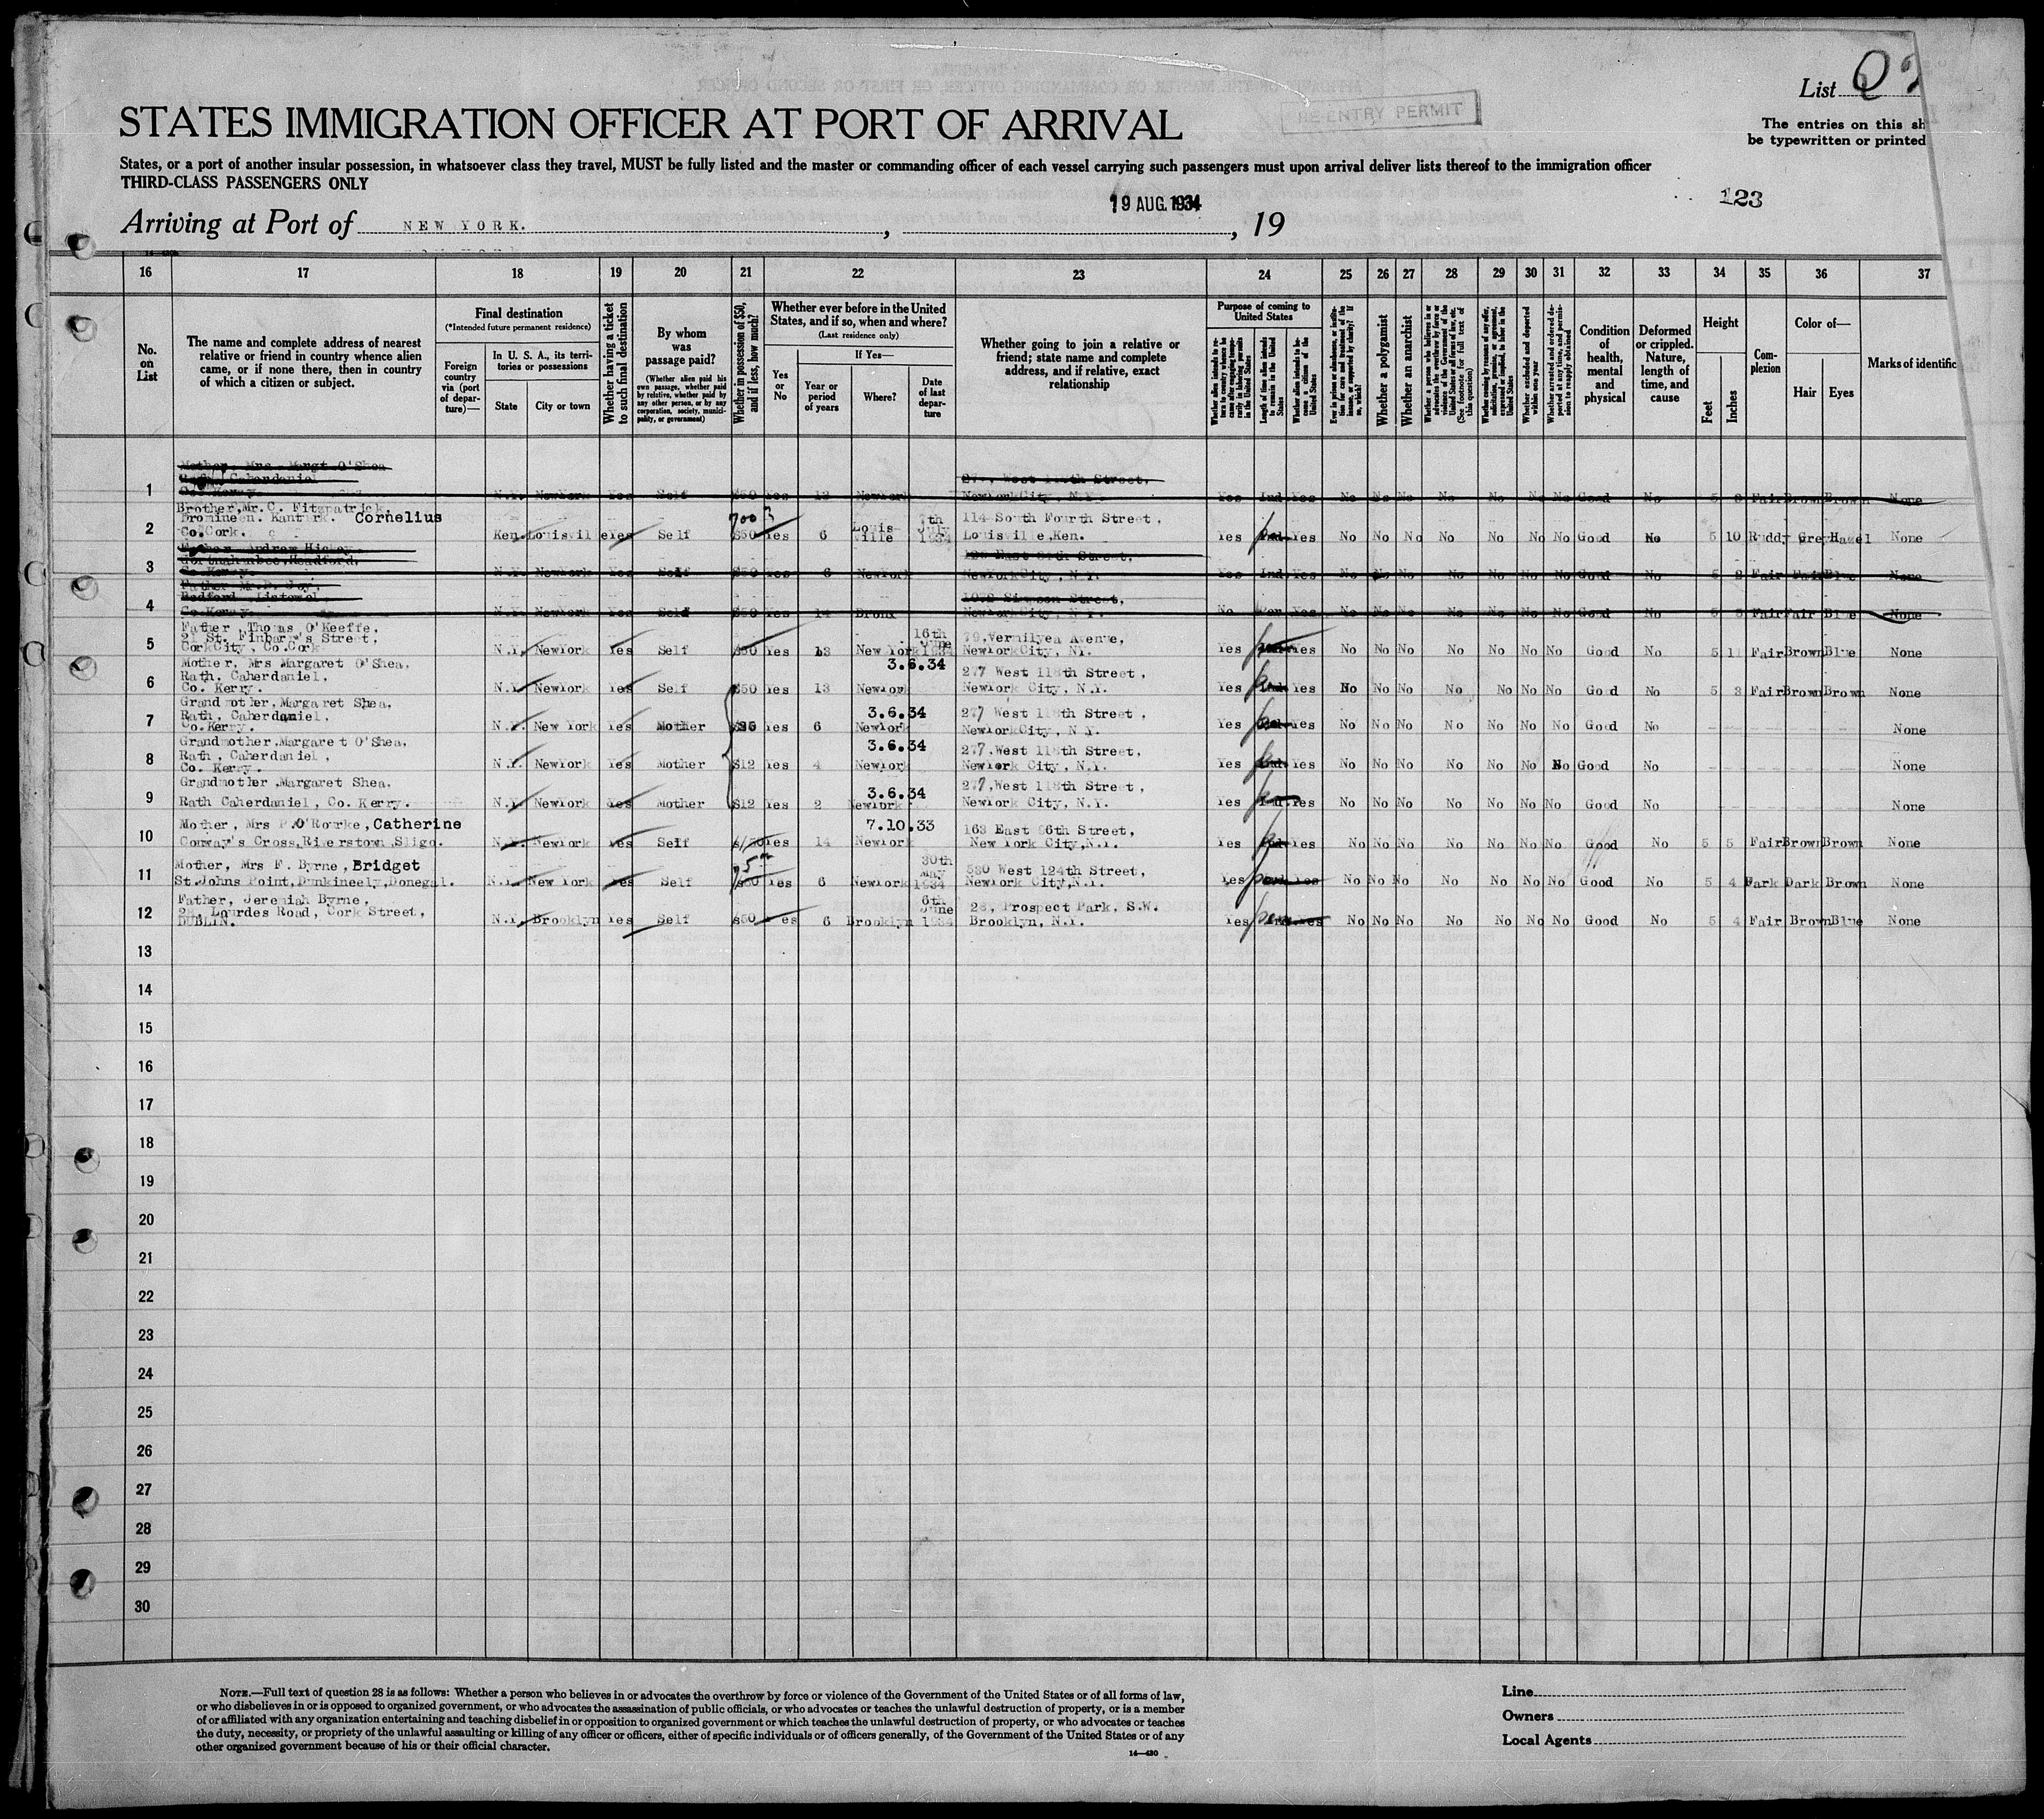 List Q 2
RE-ENTRY PERMIT
STATES IMMIGRATION OFFICER AT PORT OF ARRIVAL
The entries on this sh
be typewritten or printed
States, or a port of another insular possession, in whatsoever class they travel, MUST be fully listed and the master or commanding officer of each vessel carrying such passengers must upon arrival deliver lists thereof to the immigration officer
THIRD-CLASS PASSENGERS ONLY
123
19 AUG. 1934
Arriving at Port of NEW YORK. , , 19
16 17 18 19 20 21 22 23 24 25 26 27 28 29 30 31 32 33 34 35 36 37
No. on List
The name and complete address of nearest
relative or friend in country whence alien
came, or if none there, then in country
of which a citizen or subject.
Final destination
(*Intended future permanent residence)
Foreign country via (port of departure)—
In U. S. A., its territories or possessions
State
City or town
Whether having a ticket to such final destination
By whom was passage paid?
(Whether alien paid his own passage, whether paid by relative, whether paid by any other person, or by any corporation, society, municipality, or government)
Whether in possession of $50, and if less, how much?
Whether ever before in the United States, and if so, when and where?
(Last residence only)
Yes or No
If Yes—
Year or period of years
Where?
Date of last departure
Whether going to join a relative or
friend; state name and complete
address, and if relative, exact
relationship
Purpose of coming to United States
Whether alien intends to return to country whence he came after engaging temporarily in laboring pursuits in the United States
Length of time alien intends to remain in the United States
Whether alien intends to become a citizen of the United States
Ever in prison or almshouse, or institution for care and treatment of the insane, or supported by charity? If so, which?
Whether a polygamist
Whether an anarchist
Whether coming by reason of any offer, solicitation, promise, or agreement, expressed or implied, to labor in the United States
Whether excluded and deported within one year
Whether arrested and ordered deported at any time, and permission to reapply obtained
Condition of health, mental and physical
Deformed or crippled. Nature, length of time, and cause
Height
Feet
Inches
Complexion
Color of—
Hair
Eyes
Marks of identific
1 Mother, Mrs. Margt O'Shea
Caherdaniel
Co. Kerry. N.Y. NewYork Yes Self $50 Yes 13 NewYork NewYork City, N.Y. Yes Ind. Yes No No No No No No No Good No 5 8 Fair Brown Brown None
2 Brother, Mr. C. Fitzpatrick,
Dromineen. Kanturk. Cornelius
Co.Cork. Ken. Louisville Yes Self 700 $50 Yes 6 Louisville 7th July 1934 114 South Fourth Street,
Louisville, Ken. Yes Ind. Yes No No No No No No No Good No 5 10 Ruddy Grey Hazel None
3 Father, Andrew Hickey
Headford,
Co. Kerry. N.Y. NewYork Yes Self $50 Yes 6 NewYork NewYork City, N.Y. Yes Ind. Yes No No No No No No No Good No 5 8 Fair Fair Blue None
4 Father Mr. P. Joy,
Bedford, Listowel,
Co Kerry. N.Y. NewYork Yes Self $50 Yes 14 Bronx Simpson Street,
NewYork City, N.Y. No Per Yes No No No No No No No Good No 5 5 Fair Fair Blue None
5 Father Thomas O'Keeffe,
21 St. Finbarr's Street,
CorkCity, Co.Cork N.Y. NewYork Yes Self $50 Yes 13 New York 16th June 1934 79, Vermilyea Avenue,
NewYork City, NY. Yes Ind. Yes No No No No No No No Good No 5 11 Fair Brown Blue None
6 Mother, Mrs Margaret O'Shea,
Rath, Caherdaniel,
Co. Kerry. N.Y. NewYork Yes Self $50 Yes 13 NewYork 3.6.34 277 West 118th Street,
NewYork City, N.Y. Yes Ind. Yes No No No No No No No Good No 5 8 Fair Brown Brown None
7 Grandmother, Margaret Shea,
Rath, Caherdaniel,
Co.Kerry. N.Y. New York Yes Mother Yes 6 NewYork 3.6.34 277 West 118th Street,
NewYork City, N.Y. Yes Ind. Yes No No No No No No No Good No None
8 Grandmother, Margaret O'Shea,
Rath, Caherdaniel,
Co. Kerry. N.Y. NewYork Yes Mother $12 Yes 4 NewYork 3.6.34 277, West 118th Street,
NewYork City, N.Y. Yes Ind. Yes No No No No No No No Good No None
9 Grandmother, Margaret Shea,
Rath Caherdaniel, Co. Kerry. N.Y. NewYork Yes Mother $12 Yes 2 NewYork 3.6.34 277, West 118th Street,
NewYork City, N.Y. Yes Ind. Yes No No No No No No No Good No None
10 Mother, Mrs P. O'Rourke, Catherine
Conway's Cross, Riverstown, Sligo. N.Y. NewYork Yes Self $50 Yes 14 NewYork 7.10.33 163 East 96th Street,
New York City, N.Y. Yes Ind. Yes No No No No No No No Good No 5 5 Fair Brown Brown None
11 Mother, Mrs F. Byrne, Bridget
St.Johns Point, Dunkineely, Donegal. N.Y. New York Yes Self $50 Yes 6 NewYork 30th May 1934 530 West 124th Street,
NewYork City, N.Y. Yes Yes No No No No No No No Good No 5 4 Dark Dark Brown None
12 Father, Jeremiah Byrne,
Lourdes Road, Cork Street,
DUBLIN. N.Y. Brooklyn Yes Self $50 Yes 6 Brooklyn 6th June 1934 28, Prospect Park, S.W.
Brooklyn, N.Y. Yes Ind. Yes No No No No No No No Good No 5 4 Fair Brown Blue None
13
14
15
16
17
18
19
20
21
22
23
24
25
26
27
28
29
30
NOTE.—Full text of question 28 is as follows: Whether a person who believes in or advocates the overthrow by force or violence of the Government of the United States or of all forms of law,
or who disbelieves in or is opposed to organized government, or who advocates the assassination of public officials, or who advocates or teaches the unlawful destruction of property, or is a member
of or affiliated with any organization entertaining and teaching disbelief in or opposition to organized government or which teaches the unlawful destruction of property, or who advocates or teaches
the duty, necessity, or propriety of the unlawful assaulting or killing of any officer or officers, either of specific individuals or of officers generally, of the Government of the United States or of any
other organized government because of his or their official character.
14—430
Line
Owners
Local Agents